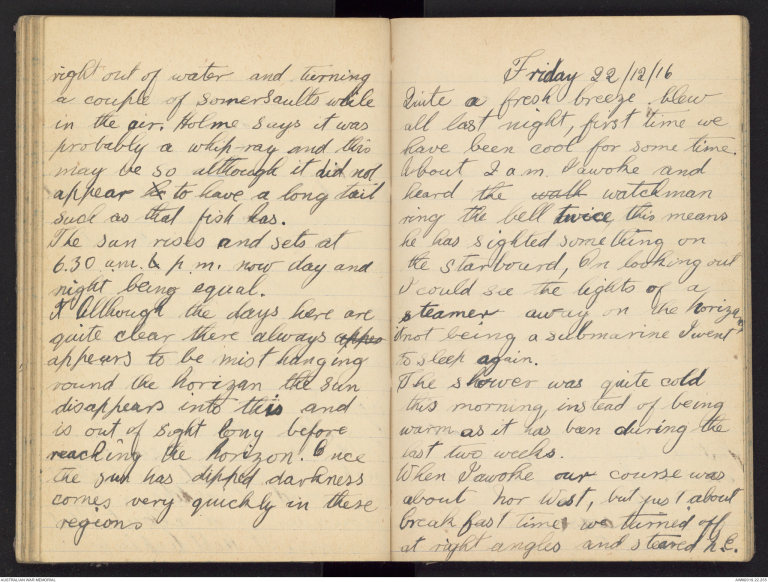 right out of water and turning
a couple of somersaults while
in the air. Holme says it was
probably a whip-ray and this
may be so although it did not
appear to have a long tail
such as that fish has.
The sun rises and sets at
6.30 a.m. & p.m. now day and
night being equal.
Although the days here are
quite clear there always
appears to be mist hanging
round the horizan the sun
disappears into this and
is out of sight long before
reaching the horizon. Once
the sun has dipped darkness
comes very quickly in these
regions
Friday 22/12/16
Quite a fresh breeze blew
all last night, first time we
have been cool for some time.
About 2 a.m. I awoke and
heard the watchman
ring the bell twice, this means
he has sighted something on
the starbourd, On looking out
I could see the lights of a
steamer away on the horizon
it not being a submarine I went
to sleep again.
The shower was quite cold
this morning, instead of being
warm as it has been during the
last two weeks.
When I awoke our course was
about nor West, but just about
breakfast time we turned off
at right angles and steared N.E.
AUSTRALIAN WAR MEMORIAL